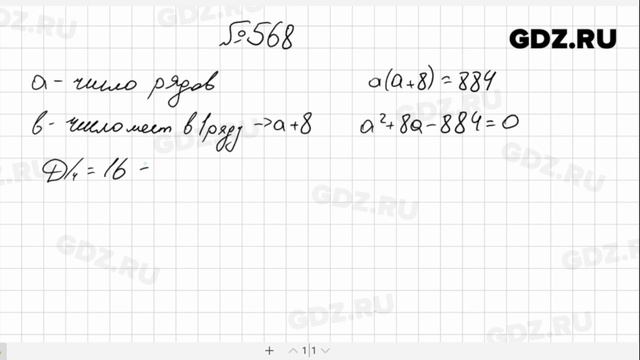 №568
GDZ.RU
a - число рядов
a(a+8) = 884
в - число мест в 1 ряду -> a+8
a²+8a-884=0
D/4 = 16 -
GDZ.RU
GDZ.RU
GDZ.RU
GDZ.RU
GDZ.RU
GDZ.RU
GDZ.RU
GDZ.RU
+ 1|1